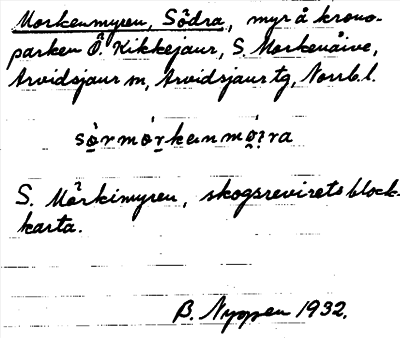 Morkenmyren, Södra, myr å krono-
parken Ö. Kikkejaur, S. Morkenåive,
Arvidsjaur sn, Arvidsjaur tg, Norrb. l.
S. Mörkimyren, skogsrevirets block-
karta.
B. Nyman 1932.